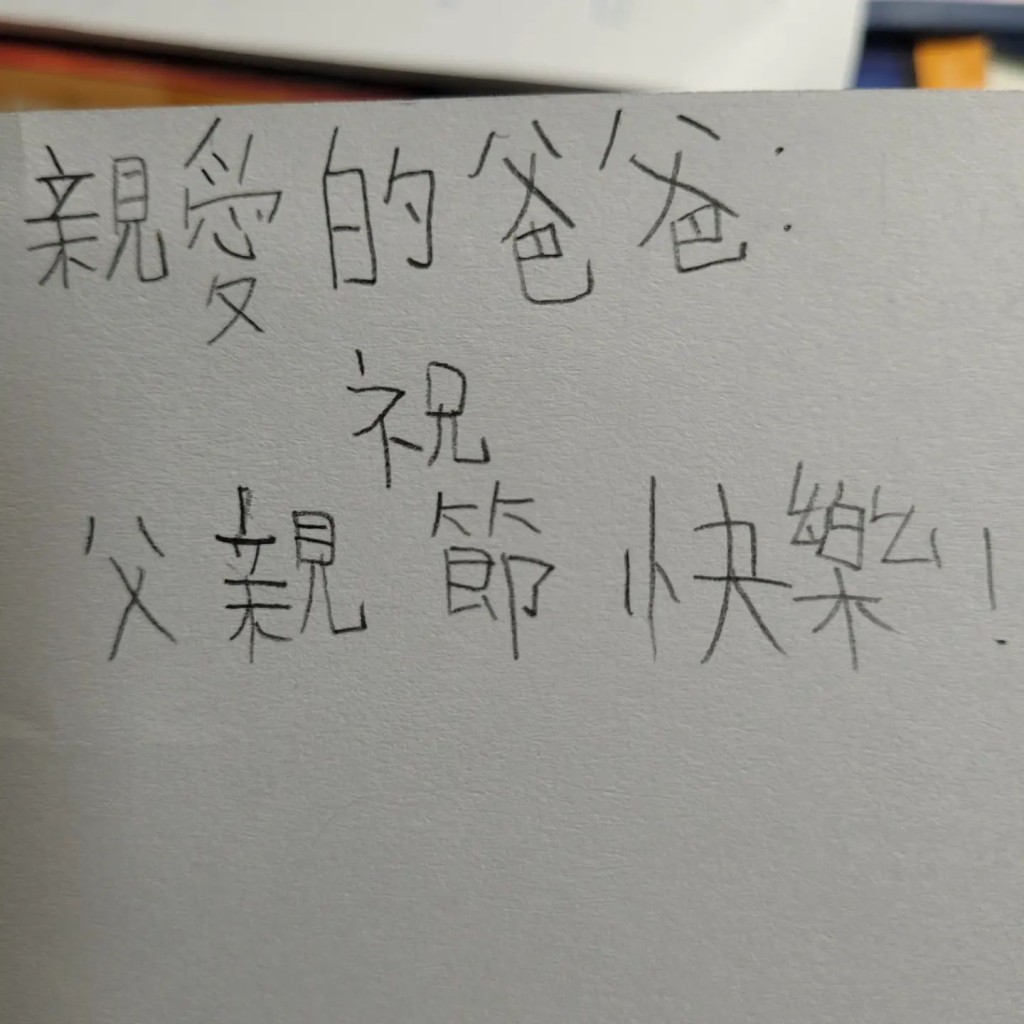 親愛的爸爸:
祝
父親節快樂!